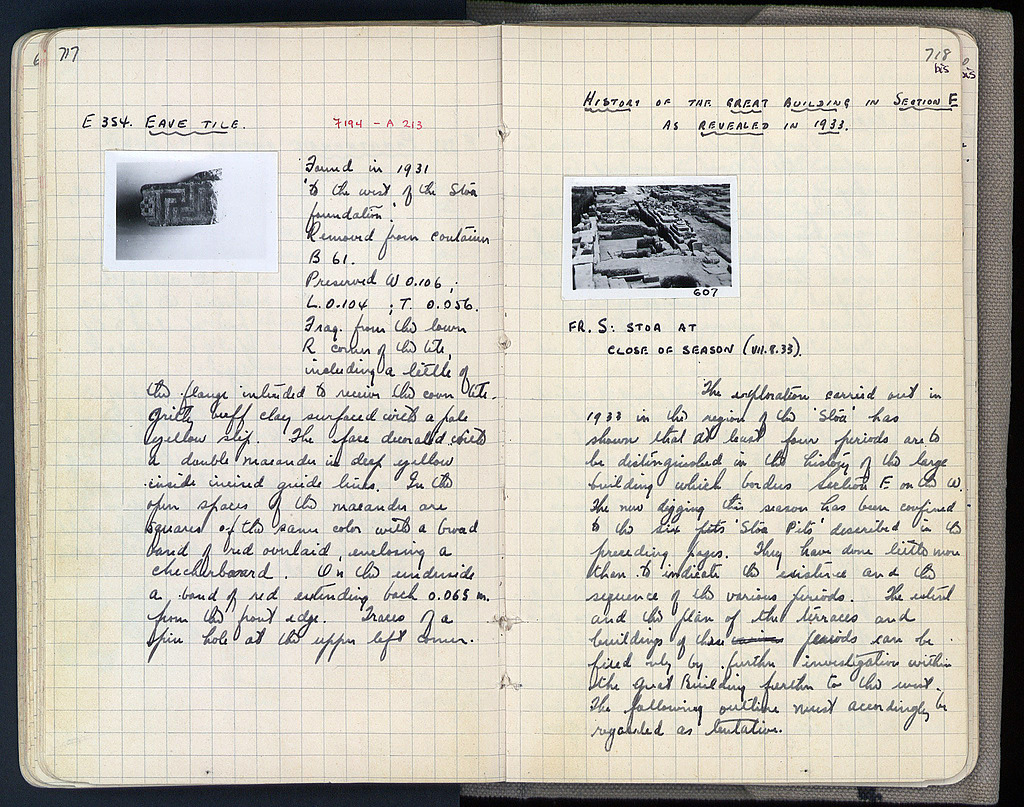 717
E 354. EAVE TILE.
7194 - A 213
Found in 1931
"to the west of the Stoa
foundation".
Removed from container
B 61.
Preserved W 0.106 ;
L. 0.104 ; T. 0.056.
Frag. from the lower
R corner of the tile,
including a little of
the flange intended to receive the cover tile.
Gritty buff clay surfaced with a pale
yellow slip. The face decorated with
a double maeander in deep yellow
inside incised guide lines. In the
open spaces of the maeander are
squares of the same color with a broad
band of red overlaid, enclosing a
checkerboard. On the underside
a band of red extending back 0.065 m.
from the front edge. Traces of a
pin hole at the upper left corner.
718
bis
HISTORY OF THE GREAT BUILDING IN SECTION E
AS REVEALED IN 1933.
607
FR. S: STOA AT
CLOSE OF SEASON (VII.8.33).
The exploration carried out in
1933 in the region of the 'Stoa' has
shown that at least four periods are to
be distinguished in the history of the large
building which borders Section E on the W.
The new digging this season has been confined
to the six pits 'Stoa Pits' described in the
preceding pages. They have done little more
than to indicate the existence and the
sequence of the various periods. The extent
and the plan of the terraces and
buildings of these periods can be
fixed only by further investigation within
the Great Building further to the west.
The following outline must accordingly be
regarded as tentative.